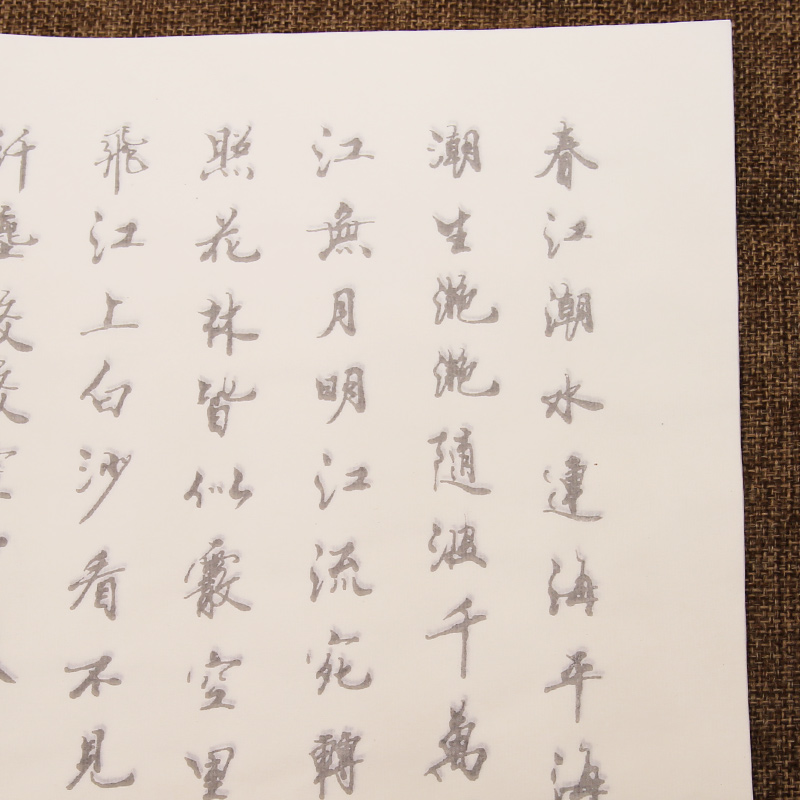 春江潮水連海平海
潮生滟滟隨波千萬
江無月明江流宛轉
照花林皆似霰空里
飛江上白沙看不見
纤塵皎皎空